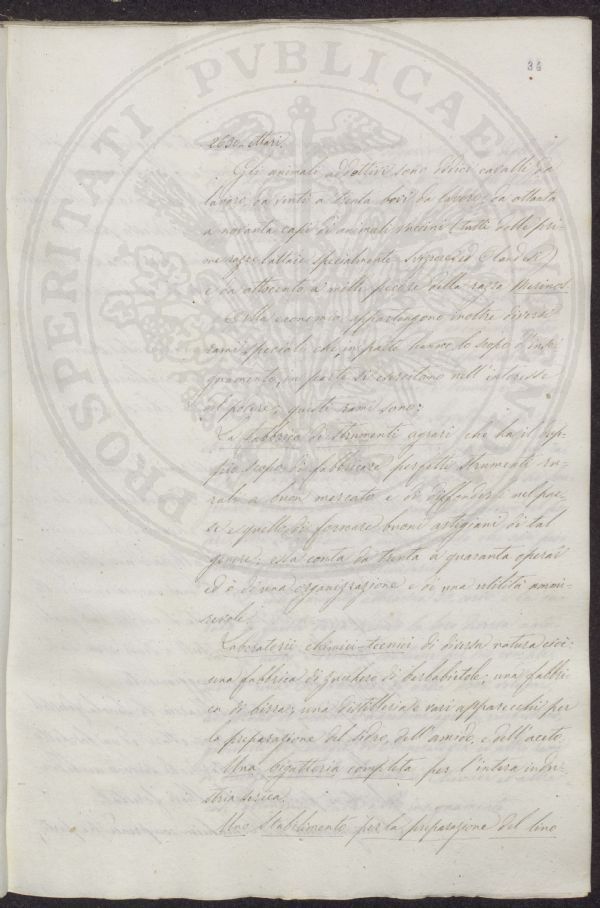 34
PROSPERITATI PVBLICAE
2630. Mari.
Gli animali addottivi sono dodici cavalli da
lavoro, da venti a trenta bovi da lavoro, da ottanta
a novanta capi di animali vaccini (tutti delle pri-
me razze lattaie specialmente svizzere ed Olandesi)
e da ottocento a mille pecore della razza Merinos.
Alla economia appartengono inoltre diversi
rami speciali che, in parte hanno lo scopo d'inse-
gnamento, in parte si esercitano nell'interesse
del podere; questi rami sono:
La fabbrica di strumenti agrari che ha il dop-
pio scopo di fabbricare perfetti strumenti ru-
rali a buon mercato e di diffonderli nel pae-
se e quello di formare buoni artigiani di tal
genere; essa conta da trenta a quaranta operai
ed è di una organizzazione e di una utilità ammi-
revole.
Laboratorii chimici-tecnici di diversa natura cioè:
una fabbrica di zucchero di barbabietole; una fabbri-
ca di birra; una distilleria e vari apparecchi per
la preparazione del sidro, dell'amido, e dell'aceto.
Una bigatteria completa per l'intera indu-
stria serica.
Uno Stabilimento per la preparazione del lino